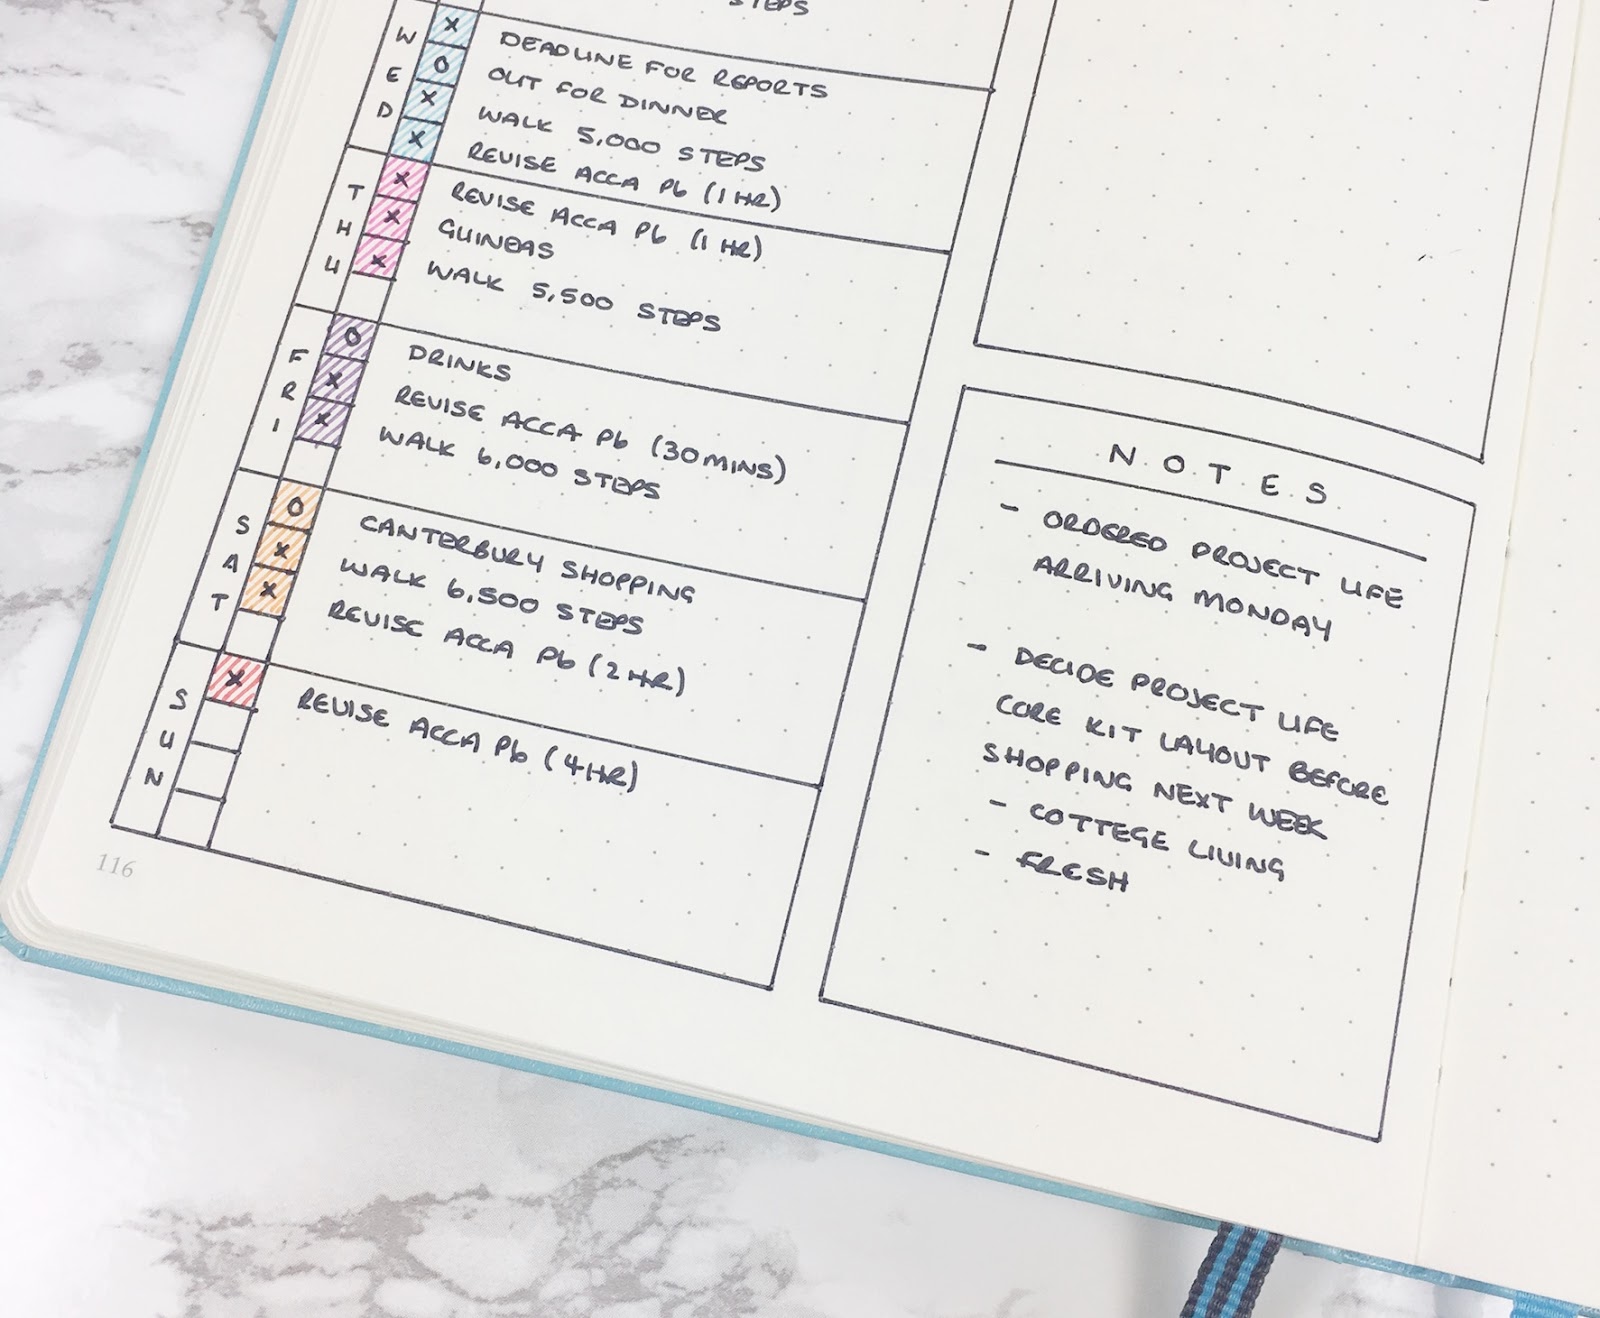 STEPS
WED
X
O
X
X
DEADLINE FOR REPORTS
OUT FOR DINNER
WALK 5,000 STEPS
REVISE ACCA P6 (1 HR)
THU
X
X
X
REVISE ACCA P6 (1 HR)
GUINEAS
WALK 5,500 STEPS
FRI
O
X
X
DRINKS
REVISE ACCA P6 (30 MINS)
WALK 6,000 STEPS
SAT
O
X
X
CANTERBURY SHOPPING
WALK 6,500 STEPS
REVISE ACCA P6 (2 HR)
SUN
X
REVISE ACCA P6 (4 HR)
116
NOTES
- ORDERED PROJECT LIFE
ARRIVING MONDAY
- DECIDE PROJECT LIFE
CORE KIT LAYOUT BEFORE
SHOPPING NEXT WEEK
- COTTEGE LIVING
- FRESH